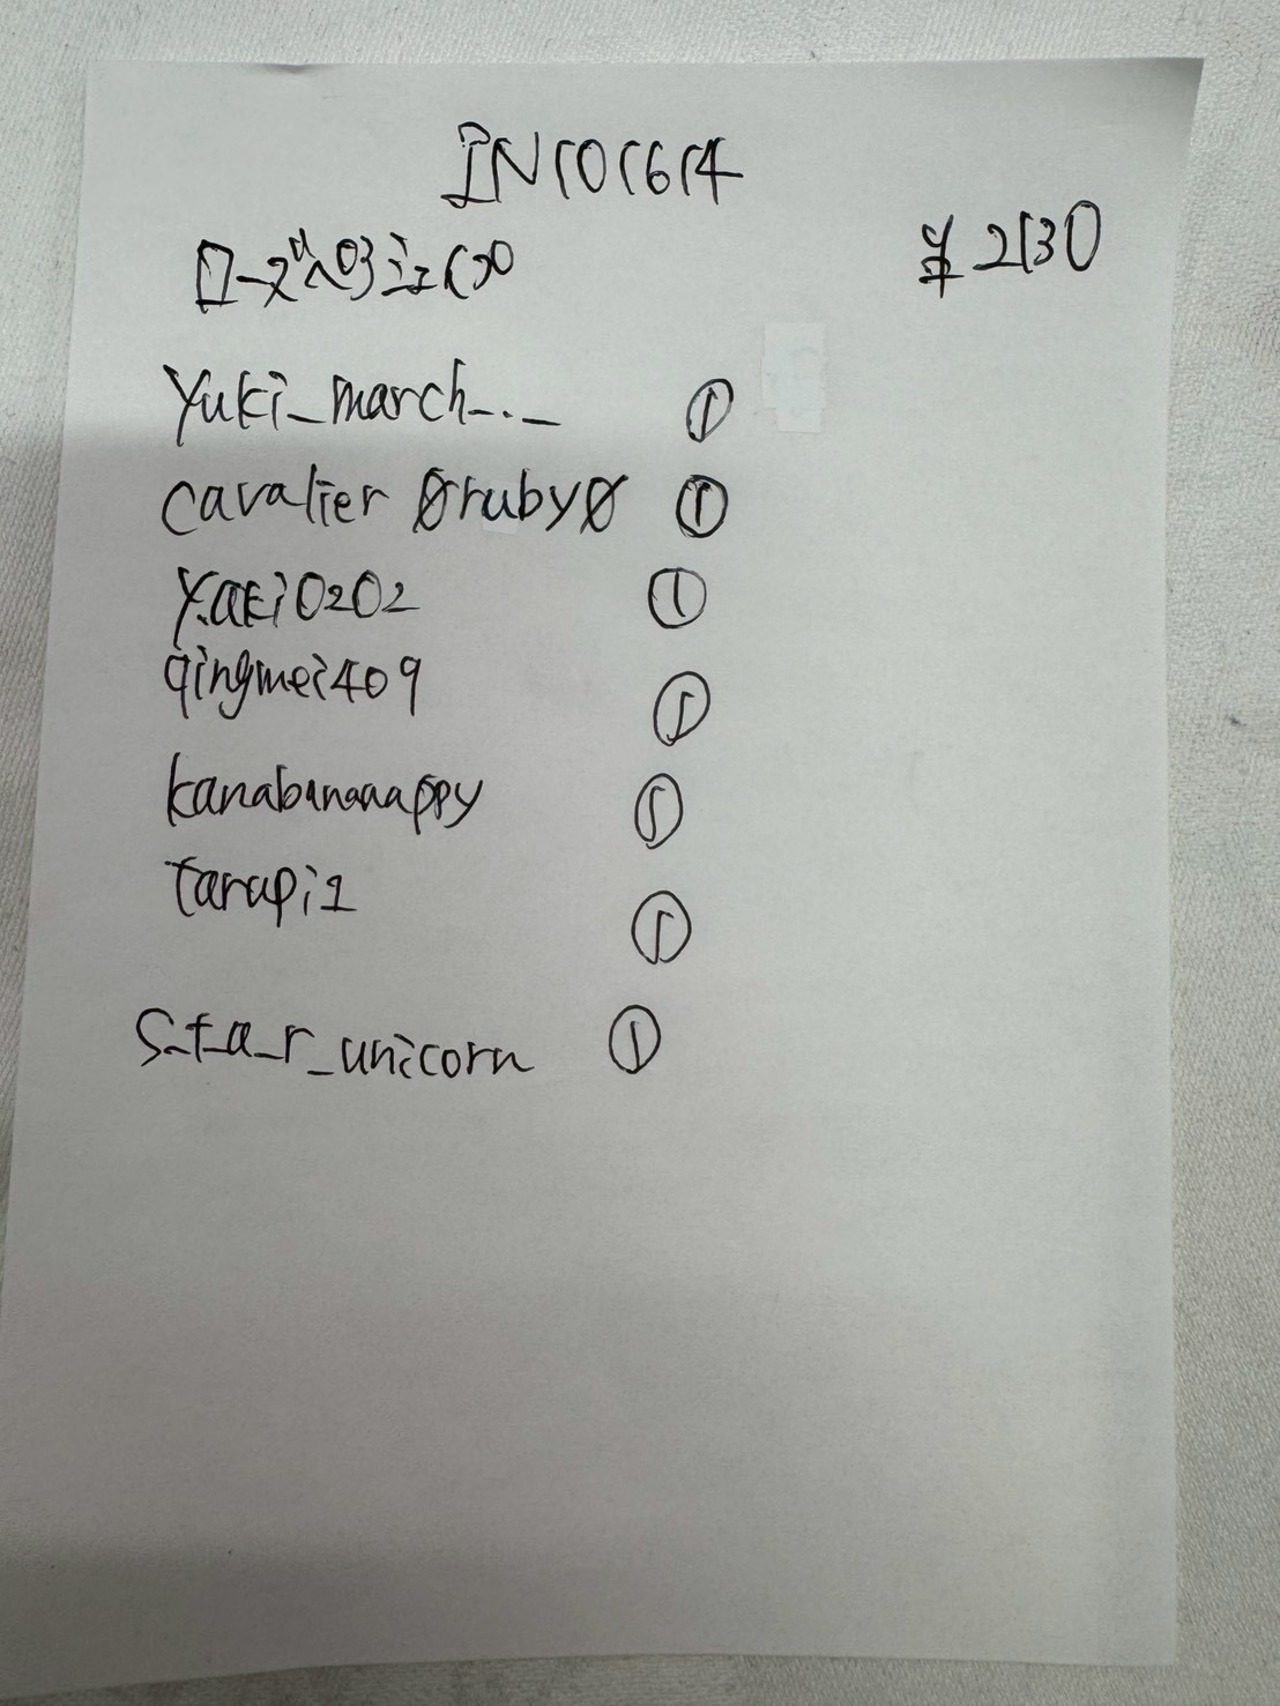 IN101614
¥2130
yuki_march_._ ①
cavalier0ruby0 ①
y.aki0202 ①
qingmei409 ①
kanabanaaappy ①
tarapi1 ①
s_t_a_r_unicorn ①